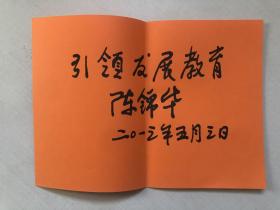 引領发展教育
陈锦华
二〇一三年五月三日